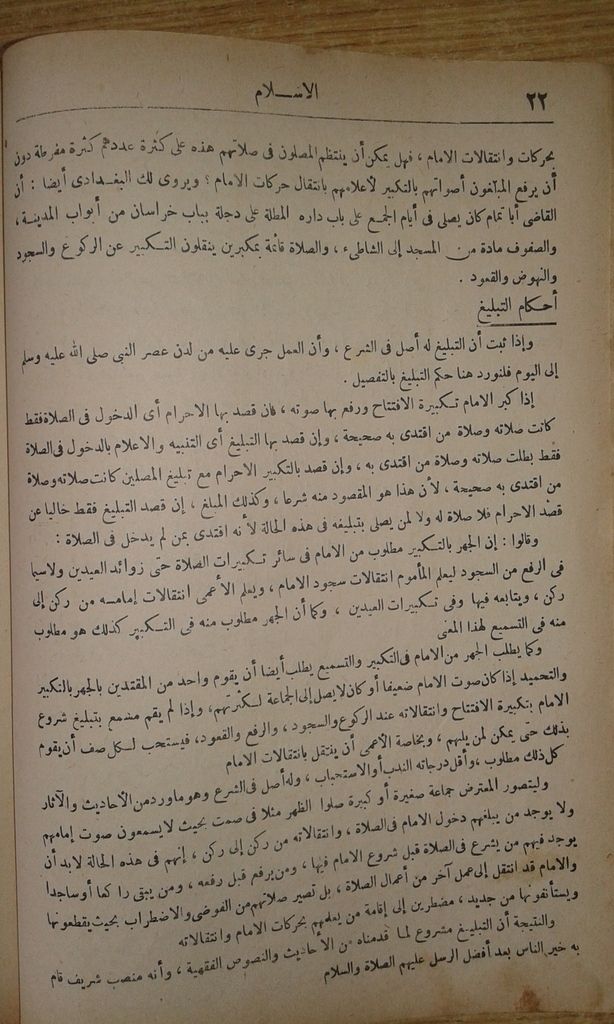 ٢٢
الاسلام
بحركات وانتقالات الامام ، فهل يمكن أن ينتظم المصلون فى صلاتهم هذه على كثرة عددهم كثرة مفرطة دون
أن يرفع المبلغون أصواتهم بالتكبير لأعلامهم بانتقال حركات الامام ؟ ويروى لك البغدادى أيضا : أن
القاضى أبا تمام كان يصلى فى أيام الجمع على باب داره المطلة على دجلة بباب خراسان من أبواب المدينة ،
والصفوف مادة من المسجد إلى الشاطىء ، والصلاة قائمة بمكبرين ينقلون التكبير عن الركوع والسجود
والنهوض والقعود .
أحكام التبليغ
وإذا ثبت أن التبليغ له أصل فى الشرع ، وأن العمل جرى عليه من لدن عصر النبى صلى الله عليه وسلم
إلى اليوم فلنورد هنا حكم التبليغ بالتفصيل .
إذا كبر الامام تكبيرة الافتتاح ورفع بها صوته ، فان قصد بها الاحرام أى الدخول فى الصلاة فقط
كانت صلاته وصلاة من اقتدى به صحيحة ، وإن قصد بها التبليغ أى التنبيه والاعلام بالدخول فى الصلاة
فقط بطلت صلاته وصلاة من اقتدى به ، وإن قصد بالتكبير الاحرام مع تبليغ المصلين كانت صلاته وصلاة
من اقتدى به صحيحة ، لأن هذا هو المقصود منه شرعا ، وكذلك المبلغ ، إن قصد التبليغ فقط خاليا عن
قصد الاحرام فلا صلاة له ولا لمن يصلى بتبليغه فى هذه الحالة لأنه اقتدى بمن لم يدخل فى الصلاة :
وقالوا : إن الجهر بالتكبير مطلوب من الامام فى سائر تكبيرات الصلاة حتى زوائد العيدين ولاسيما
فى الرفع من السجود ليعلم المأموم انتقالات سجود الامام ، ويعلم الأعمى انتقالات إمامه من ركن إلى
ركن ، ويتابعه فيها وفى تكبيرات العيدين ، وكما أن الجهر مطلوب منه فى التكبير كذلك هو مطلوب
منه فى التسميع لهذا المعنى
وكما يطلب الجهر من الامام فى التكبير والتسميع يطلب أيضا أن يقوم واحد من المقتدين بالجهر بالتكبير
والتحميد إذا كان صوت الامام ضعيفا أو كان لا يصل إلى الجماعة لكثرتهم ، وإذا لم يقم مسمع بتبليغ شروع
الامام بتكبيرة الافتتاح وانتقالاته عند الركوع والسجود ، والرفع والقعود ، فيستحب لكل صف أن يقوم
بذلك حتى يمكن لمن يليهم ، وبخاصة الأعمى أن ينتقل بانتقالات الامام
كل ذلك مطلوب ، وأقل درجاته الندب أو الاستحباب ، وله أصل فى الشرع وهو ماورد من الأحاديث والآثار
وليتصور المعترض جماعة صغيرة أو كبيرة صلوا الظهر مثلا فى صمت بحيث لا يسمعون صوت إمامهم
ولا يوجد من يبلغهم دخول الامام فى الصلاة ، وانتقالاته من ركن إلى ركن ، إنهم فى هذه الحالة لابد أن
يوجد فيهم من يشرع فى الصلاة قبل شروع الامام فيها ، ومن يرفع قبل رفعه ، ومن يبقى راكعا أو ساجدا
والامام قد انتقل إلى عمل آخر من أعمال الصلاة ، بل تصير صلاتهم من الفوضى والاضطراب بحيث يقطعونها
ويستأنفونها من جديد ، مضطرين إلى إقامة من يعلمهم بحركات الامام وانتقالاته
والنتيجة أن التبليغ مشروع لما قدمناه من الأحاديث والنصوص الفقهية ، وأنه منصب شريف قام
به خير الناس بعد أفضل الرسل عليهم الصلاة والسلام